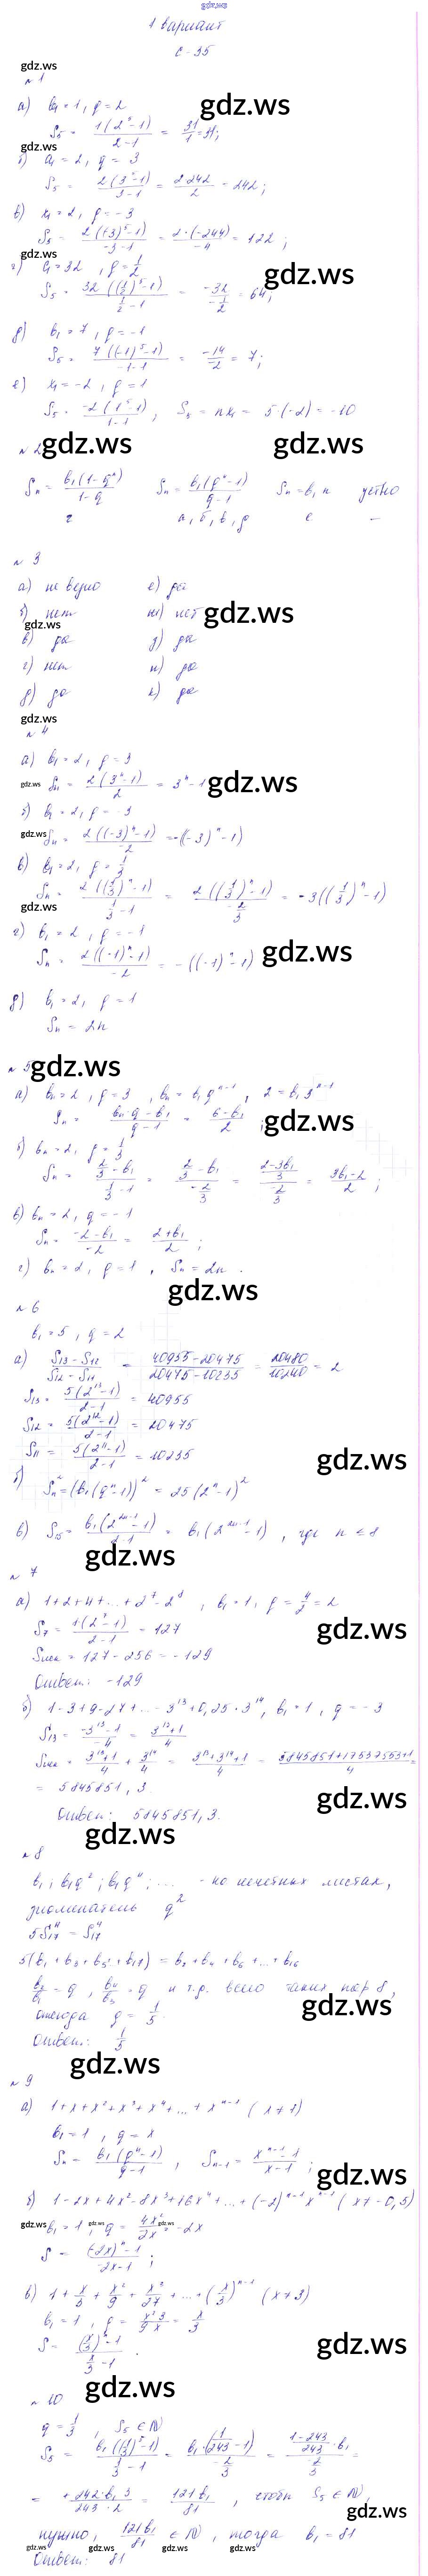 gdz.ws
1 вариант
С-35
gdz.ws
№ 1
а) b₁ = 1, q = 2
gdz.ws
S₅ = 1(2⁵-1)/2-1 = 31/1 = 31;
gdz.ws
б) a₁ = 2, q = 3
S₅ = 2(3⁵-1)/3-1 = 2·242/2 = 242;
в) x₁ = 2, q = -3
S₅ = 2((-3)⁵-1)/-3-1 = 2·(-244)/-4 = 122;
gdz.ws
г) c₁ = 32, q = 1/2
gdz.ws
S₅ = 32((1/2)⁵-1)/(1/2-1) = -32/(-1/2) = 64;
д) b₁ = 7, q = -1
S₅ = 7((-1)⁵-1)/-1-1 = -14/-2 = 7;
е) x₁ = -2, q = 1
S₅ = -2(1⁵-1)/1-1, S₅ = nx₁ = 5·(-2) = -10
№ 2
gdz.ws gdz.ws
Sₙ = b₁(1-qⁿ)/1-q Sₙ = b₁(qⁿ-1)/q-1 Sₙ = b₁n устно
г а, б, в, д е -
№ 3
а) не верно е) да
б) нет ж) нет
gdz.ws
gdz.ws
в) да з) да
г) нет и) да
д) да к) да
gdz.ws
№ 4
а) b₁ = 2, q = 3
gdz.ws
Sₙ = 2(3ⁿ-1)/2 = 3ⁿ-1
gdz.ws
б) b₁ = 2, q = -3
gdz.ws
Sₙ = 2((-3)ⁿ-1)/-2 = -((-3)ⁿ-1)
в) b₁ = 2, q = 1/3
Sₙ = 2((1/3)ⁿ-1)/(1/3-1) = 2((1/3)ⁿ-1)/(-2/3) = -3((1/3)ⁿ-1)
gdz.ws
г) b₁ = 2, q = -1
Sₙ = 2((-1)ⁿ-1)/-2 = -((-1)ⁿ-1)
gdz.ws
д) b₁ = 2, q = 1
Sₙ = 2n
№ 5
gdz.ws
а) bₙ = 2, q = 3, bₙ = b₁qⁿ⁻¹, 2 = b₁3ⁿ⁻¹
Sₙ = bₙ·q-b₁/q-1 = 6-b₁/2;
gdz.ws
б) bₙ = 2, q = 1/3
Sₙ = (2/3-b₁)/(1/3-1) = (2/3-b₁)/(-2/3) = (2-3b₁/3)/(-2/3) = 3b₁-2/2;
в) bₙ = 2, q = -1
Sₙ = -2-b₁/-2 = 2+b₁/2;
г) bₙ = 2, q = 1, Sₙ = 2n.
gdz.ws
№ 6
b₁ = 5, q = 2
а) S₁₃-S₁₂/S₁₂-S₁₁ = 40955-20475/20475-10235 = 20480/10240 = 2
S₁₃ = 5(2¹³-1)/2-1 = 40955
S₁₂ = 5(2¹²-1)/2-1 = 20475
S₁₁ = 5(2¹¹-1)/2-1 = 10235
gdz.ws
б) Sₙ² = (b₁(qⁿ-1))² = 25(2ⁿ-1)²
в) S₁₅ = b₁(2²ⁿ⁻¹-1)/2-1 = b₁(2²ⁿ⁻¹-1), где n ≤ 8
gdz.ws
№ 7
а) 1+2+4+...+2⁷-2⁸, b₁ = 1, q = 4/2 = 2
gdz.ws
S₇ = 1(2⁷-1)/2-1 = 127
Sиск = 127-256 = -129
Ответ: -129
б) 1-3+9-27+...-3¹³+0,25·3¹⁴, b₁ = 1, q = -3
S₁₃ = -3¹³-1/-4 = 3¹³+1/4
Sиск = 3¹³+1/4 + 3¹⁴/4 = 3¹³+3¹⁴+1/4 =
= 5845851,3.
gdz.ws
Ответ: 5845851,3.
gdz.ws
№ 8
b₁; b₁q²; b₁q⁴; ... - на нечетных местах,
знаменатель q²
5S₁₇ᴴ = S₁₇ᶣ
5(b₁+b₃+b₅+b₁₇) = b₂+b₄+b₆+...+b₁₆
b₂/b₁ = q, b₄/b₃ = q и т.д. всего таких пар 8,
gdz.ws
откуда q = 1/5.
Ответ: 1/5
gdz.ws
№ 9
а) 1+x+x²+x³+x⁴+...+xⁿ⁻¹ (x≠1)
b₁ = 1, q = x
Sₙ = b₁(qⁿ-1)/q-1, Sₙ₋₁ = xⁿ⁻¹-1/x-1;
gdz.ws
б) 1-2x+4x²-8x³+16x⁴+...+(-2)ⁿ⁻¹xⁿ⁻¹ (x≠-0,5)
gdz.ws gdz.ws gdz.ws
b₁ = 1, q = 4x²/2x = -2x
S = (-2x)ⁿ-1/-2x-1;
в) 1+x/3+x²/9+x³/27+...+(x/3)ⁿ⁻¹ (x≠3)
b₁ = 1, q = x²3/9x = x/3
S = ((x/3)ⁿ-1)/(x/3-1).
gdz.ws
gdz.ws
№ 10
q = 1/3, S₅ ∈ N
S₅ = b₁((1/3)⁵-1)/(1/3-1) = b₁·(1/243-1)/(-2/3) = (1-243/243·b₁)/(-2/3) =
= +242·b₁·3/243·2 = 121b₁/81, чтобы S₅ ∈ N,
gdz.ws
нужно, 121b₁/81 ∈ N, тогда b₁ = 81
gdz.ws gdz.ws gdz.ws gdz.ws
Ответ: 81